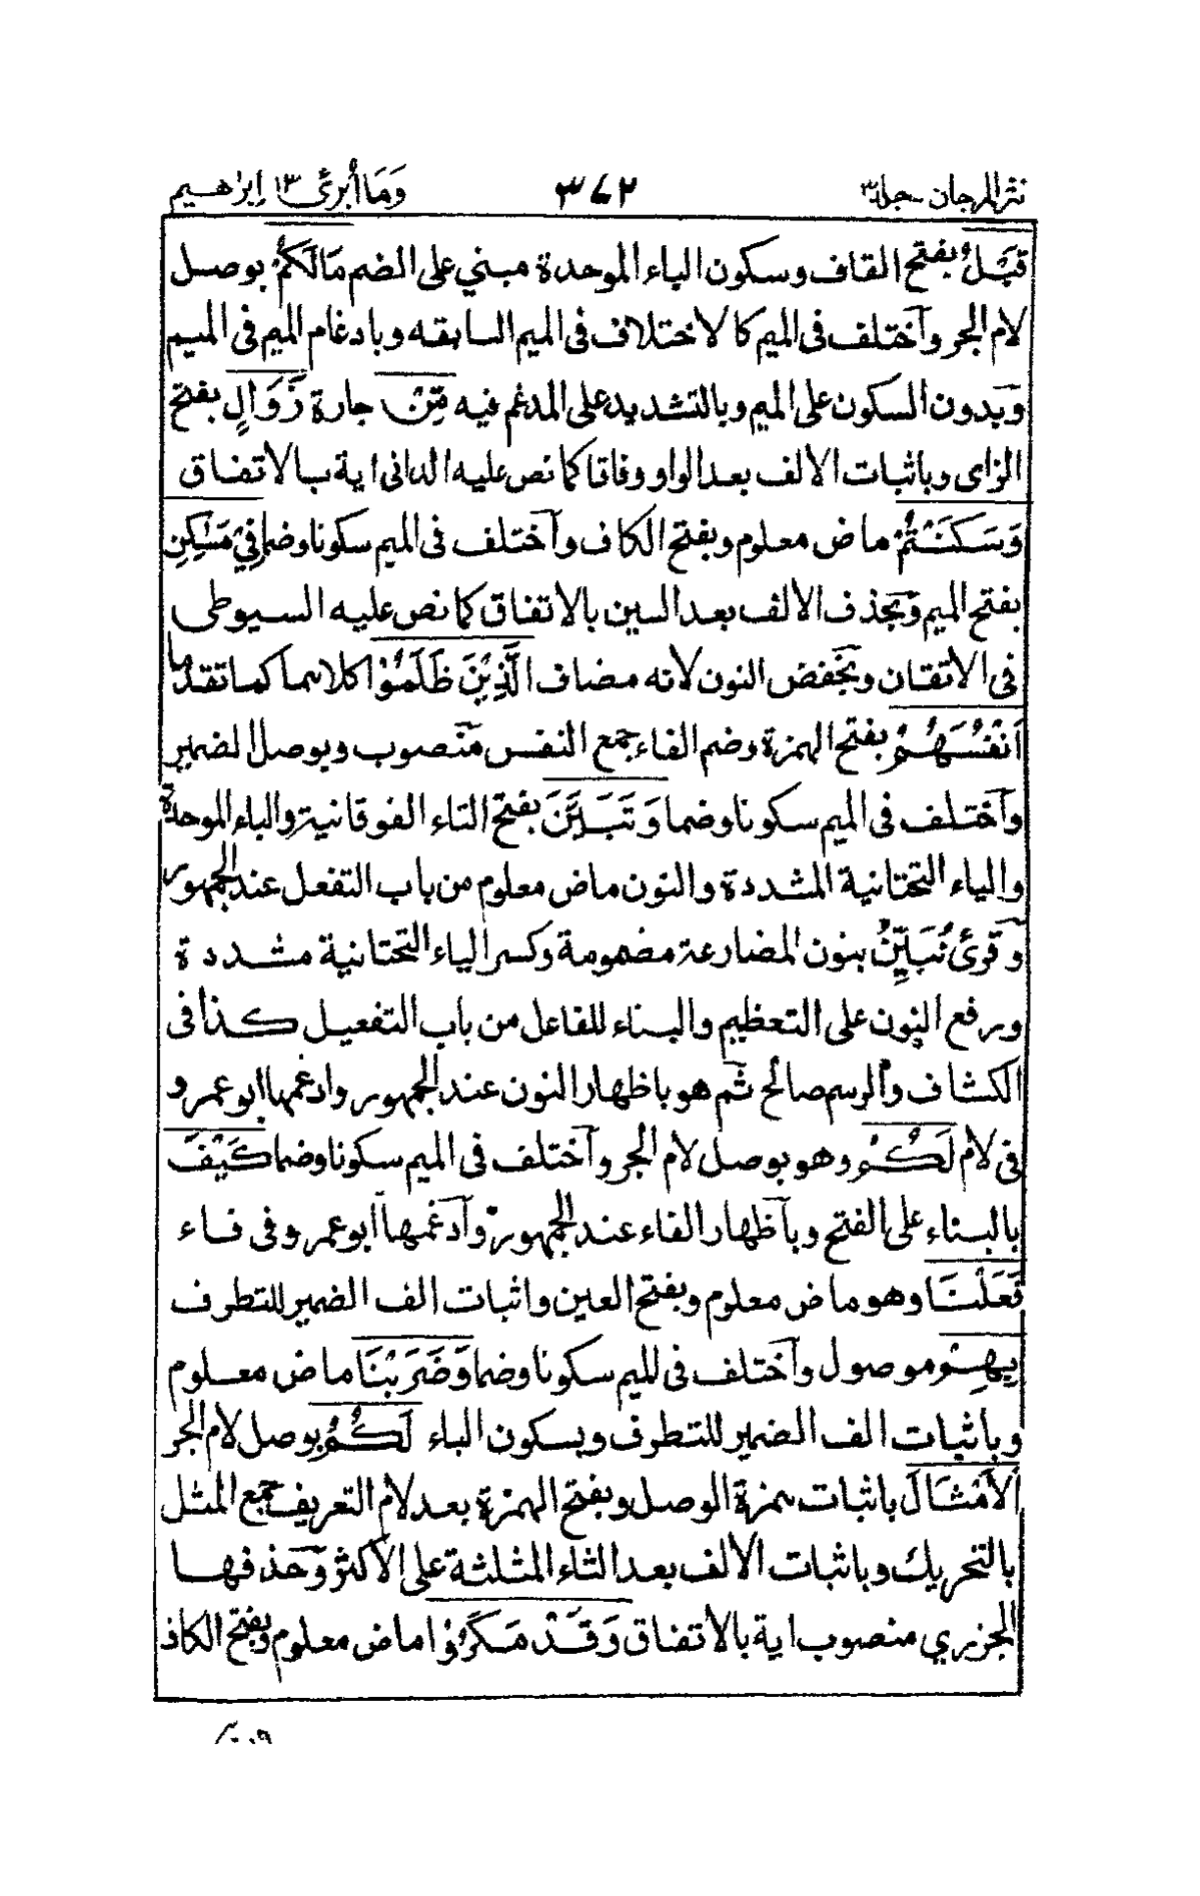 نثر المرجان ـ جلد ٣ ٣٧٢ وَمَا أُبَرِّئُ ١٣ اِبْرٰهيم
قَبْلُ بفتح القاف وسكون الباء الموحدة مبني على الضم مَالَكُمْ بوصل
لام الجر وآختلف فى الميم كالاختلاف فى الميم السابقه وبادغام الميم فى الميم
وبدون السكون على الميم وبالتشديد على المدغم فيه مِّنْ جارة زَوَالٍ بفتح
الزاى وباثبات الالف بعد الواو وفاقا كما نص عليه الدانى اية بالاتفاق
وَسَكَنْتُمْ ماض معلوم وبفتح الكاف وآختلف فى الميم سكونا وضما فِيْ مَسٰكِنِ
بفتح الميم وبحذف الالف بعد السين بالاتفاق كما نص عليه السيوطى
فى الاتقان وبخفض النون لأنه مضاف الَّذِيْنَ ظَلَمُوْا كلاهما كما تقدما
اَنْفُسَهُمْ بفتح الهمزة وضم الفاء جمع النفس منصوب وبوصل الضمير
وآختلف فى الميم سكونا وضما وَتَبَيَّنَ بفتح التاء الفوقانية والباء الموحدة
والياء التحتانية المشددة والنون ماض معلوم من باب التفعل عند الجمهور
وقرئ نُبَيِّنُ بنون المضارعة مضمومة وكسر الياء التحتانية مشددة
ورفع النون على التعظيم والبناء للفاعل من باب التفعيل كذا فى
الكشاف والرسم صالح ثم هو باظهار النون عند الجمهور وادغمها ابو عمرو
فى لام لَكُمْ وهو بوصل لام الجر وآختلف فى الميم سكونا وضما كَيْفَ
بالبناء على الفتح وبآظهار الفاء عند الجمهور وآدغمها ابو عمرو فى فاء
فَعَلْنَا وهو ماض معلوم وبفتح العين واثبات الف الضمير للتطرف
بِهِمْ موصول وآختلف فى الميم سكونا وضما وَضَرَبْنَا ماض معلوم
وباثبات الف الضمير للتطرف وبسكون الباء لَكُمُ بوصل لام الجر
الْاَمْثَالَ باثبات همزة الوصل وبفتح الهمزة بعد لام التعريف جمع المثل
بالتحريك وباثبات الالف بعد الثاء المثلثة على الاكثر وحذفها
الجزري منصوب اية بالاتفاق وَقَدْ مَكَرُوْا ماض معلوم وبفتح الكاف